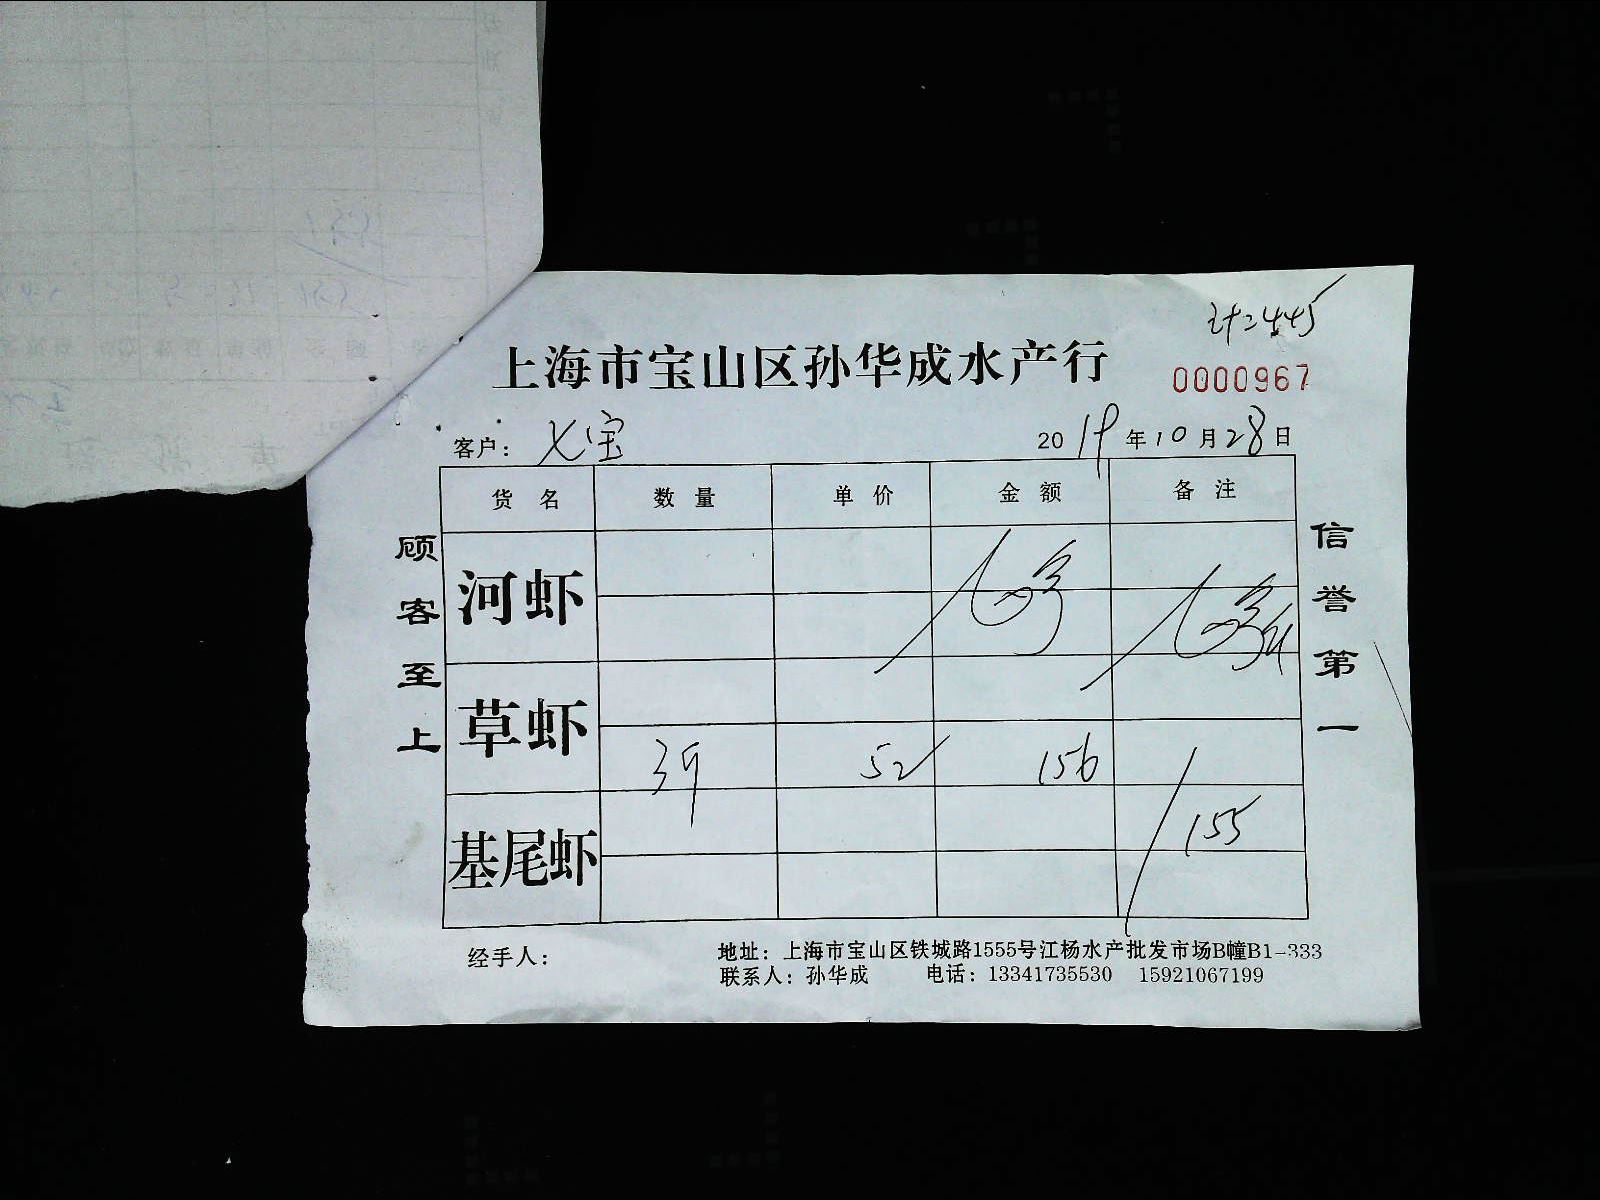 计=445
上海市宝山区孙华成水产行
0000967
客户： 七宝 2019年10月28日
货名 数量 单价 金额 备注
河虾
草虾
3斤 52 156
基尾虾
155
顾客至上
信誉第一
经手人： 地址：上海市宝山区铁城路1555号江杨水产批发市场B幢B1-333
联系人：孙华成 电话：13341735530 15921067199